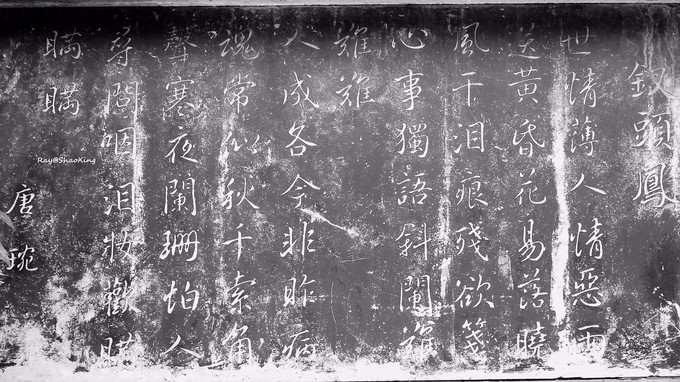 釵頭鳳
世情薄人情惡雨
送黃昏花易落曉
風干泪痕殘欲箋
心事獨語斜闌難
難難
人成各今非昨病
魂常似秋千索角
聲寒夜闌珊怕人
尋問咽泪妝歡瞞
瞞瞞
唐琬
Ray@ShaoXing